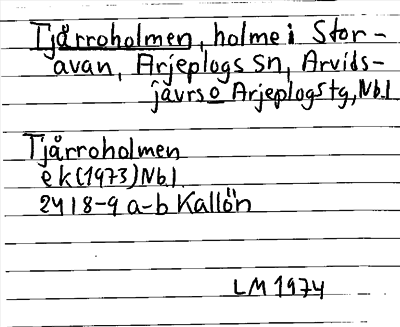 Tjårroholmen, holme i Stor-
avan, Arjeplogs sn, Arvids-
javrs o Arjeplogs tg, Nbl
Tjårroholmen
ek (1973) Nbl.
24 I 8-9 a-b Kallön
LM 1974